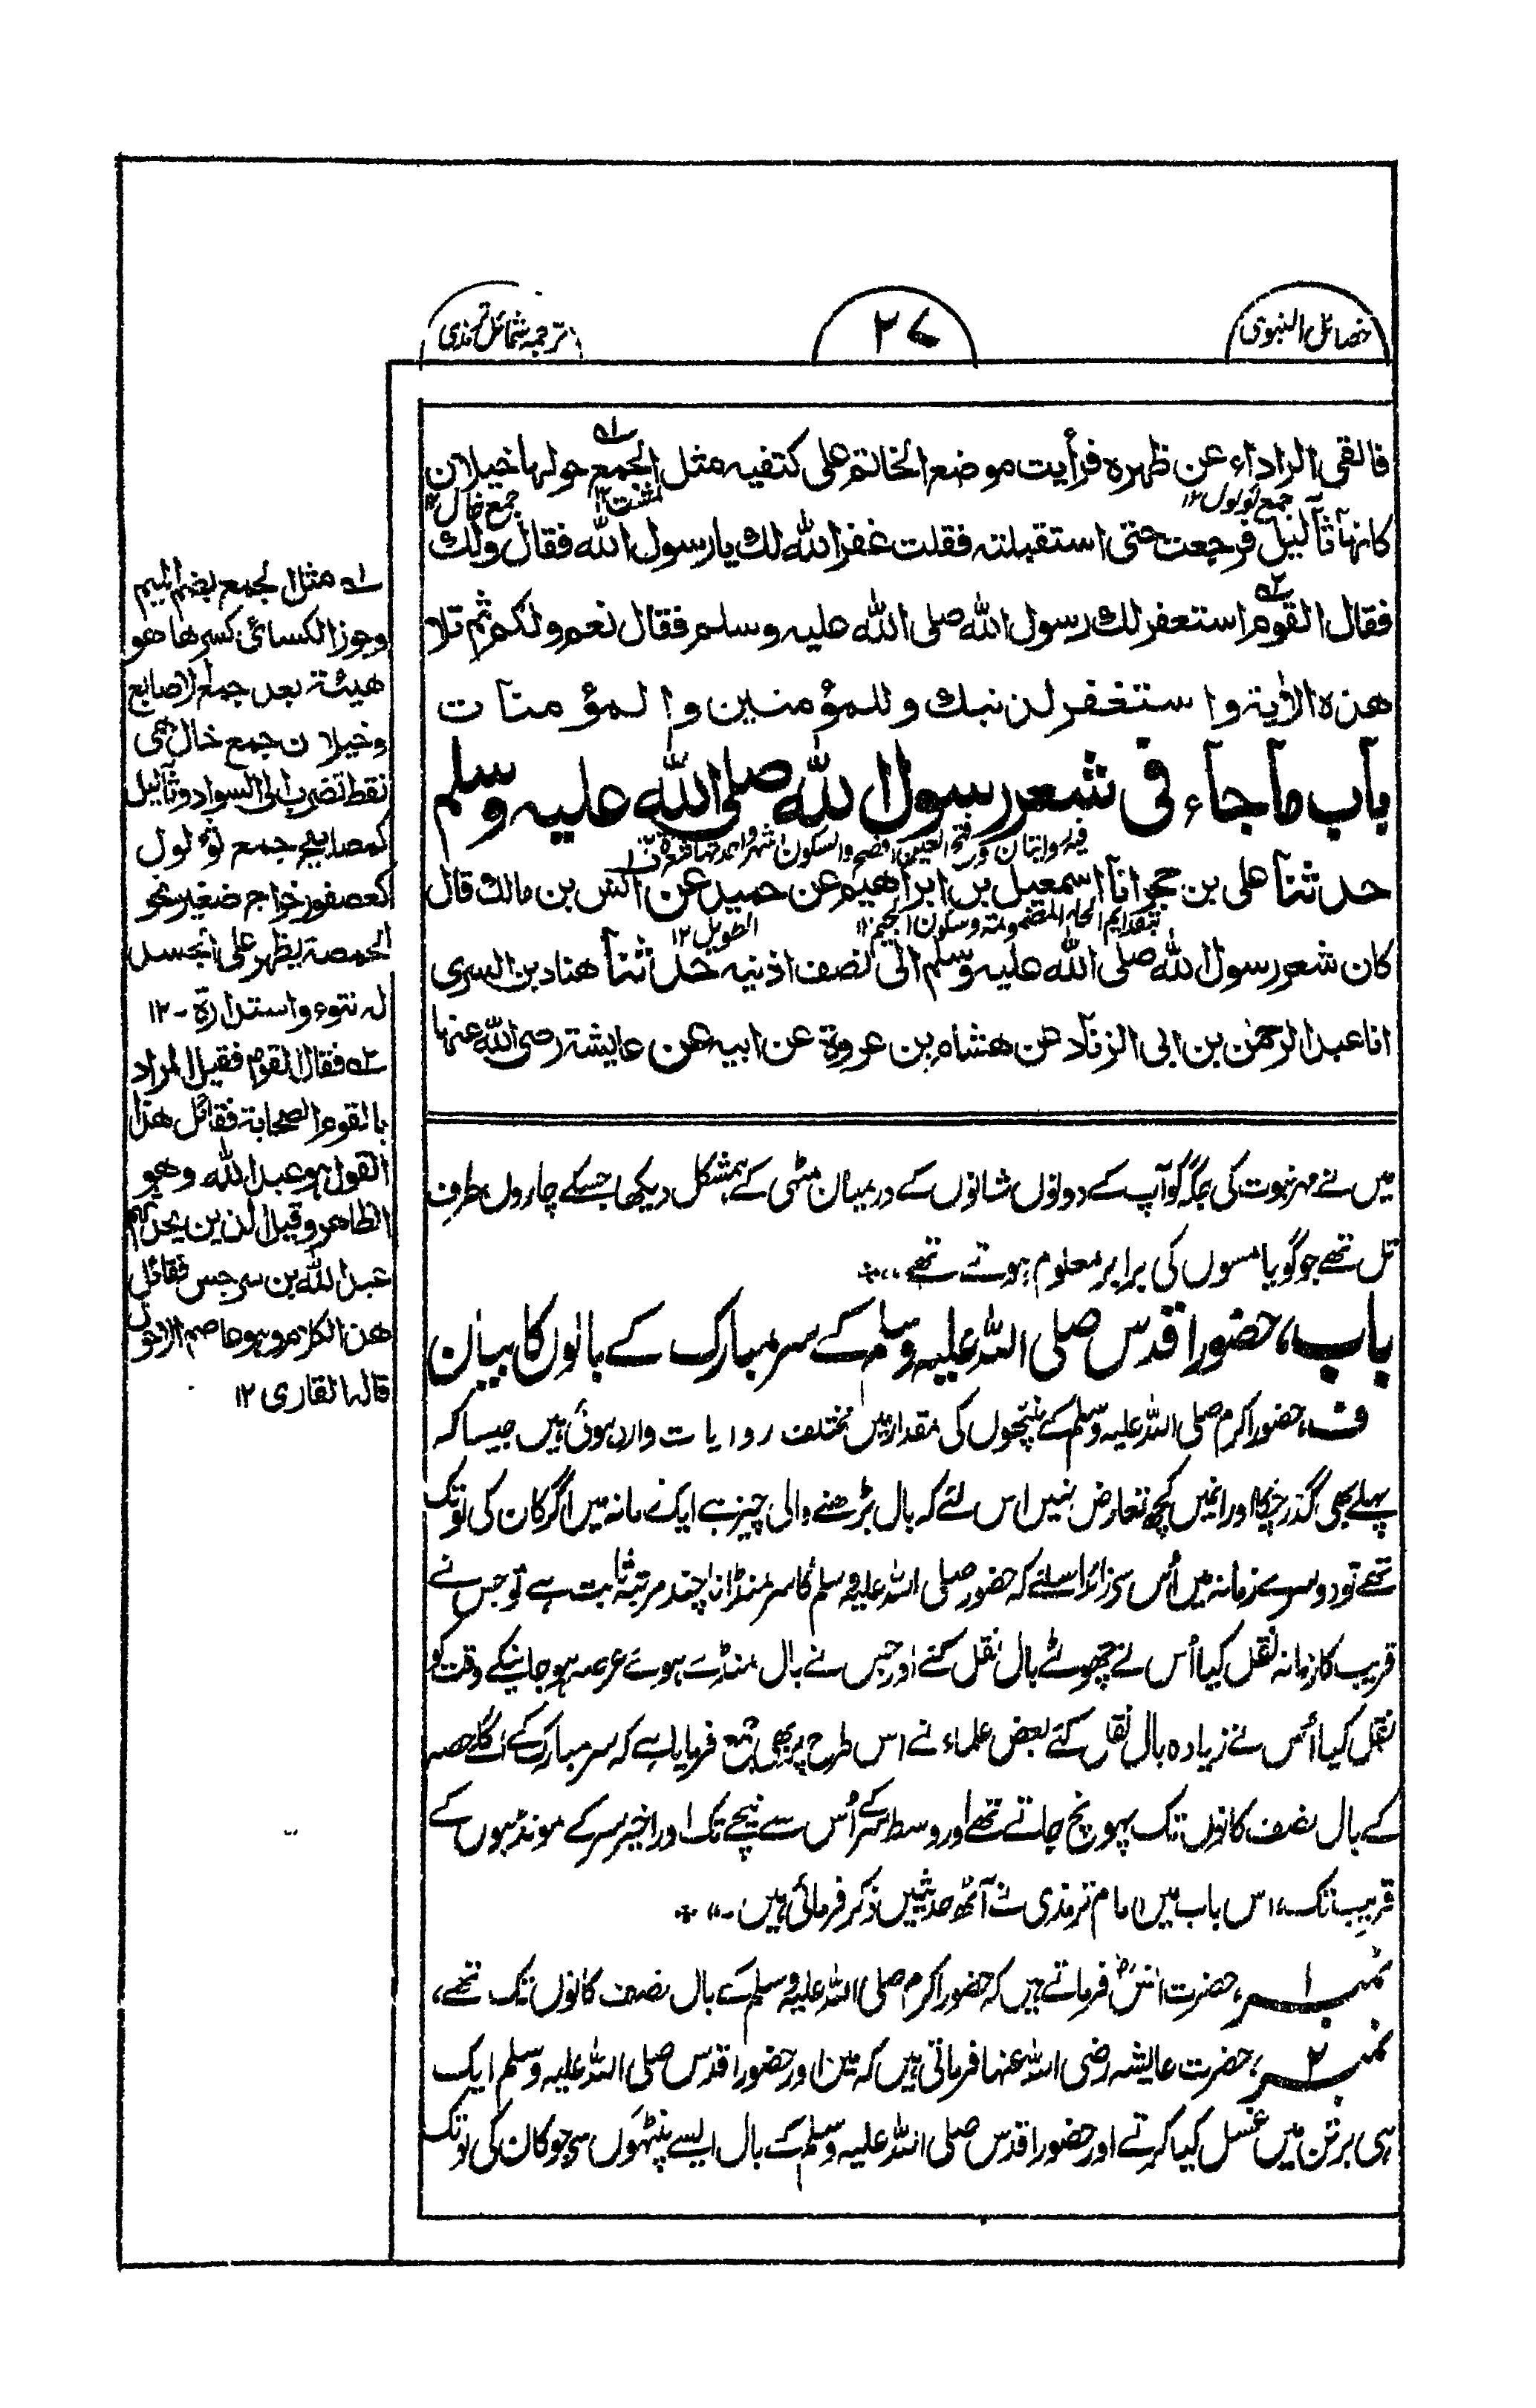 خصائل النبوی
۲۷
ترجمہ شمائل ترمذی
فالقی الرداء عن ظهره فرأيت موضع الخاتم علی كتفيه مثل الجمع حولها خيلان
جمع ثؤلول ۱۲ مشت ۱۲ جمع خال ۱۲
كانها ثآليل فرجعت حتی استقبلته فقلت غفر الله لك يا رسول الله فقال ولك
فقال القوم استغفر لك رسول الله صلی الله عليه وسلم فقال نعم ولكم ثم تلا
هذه الاية واستغفر لذنبك وللمؤمنين والمؤمنات
باب ما جاء فی شعر رسول الله صلی الله عليه وسلم
حدثنا علی بن حجر انا اسمعيل بن ابراهيم عن حميد عن انس بن مالك قال
بتقديم الحاء المضمومة وسكون الجيم ۱۲ الطويل ۱۲
كان شعر رسول الله صلی الله عليه وسلم الی نصف اذنيه حدثنا هناد بن السری
انا عبد الرحمن بن ابی الزناد عن هشام بن عروة عن ابيه عن عايشة رضی الله عنها
میں نے مہر نبوت کی جگہ کو آپ کے دونوں شانوں کے درمیان مٹھی کے ہمشکل دیکھا جسکے چاروں طرف
تل تھے جو گویا مسوں کی برابر معلوم ہوتے تھے
باب، حضور اقدس صلی اللہ علیہ وسلم کے سر مبارک کے بالوں کا بیان
ف، حضور اکرم صلی اللہ علیہ وسلم کے پٹھوں کی مقدار میں مختلف روایات وارد ہوئی ہیں جیسا کہ
پہلے بھی گذر چکا اور انمیں کچھ تعارض نہیں اس لئے کہ بال بڑھنے والی چیز ہے ایک زمانہ میں اگر کان کی لو تک
تھے تو دوسرے زمانہ میں اُس سی زائد اسلئے کہ حضور صلی اللہ علیہ وسلم کا سر منڈانا چند مرتبہ ثابت ہے تو جس نے
قریب کا زمانہ نقل کیا اُس نے چھوٹے بال نقل کئے اور جس نے بال منڈے ہوئے عرصہ ہو جانیکے وقت کو
نقل کیا اُس نے زیادہ بال نقل کئے بعض علماء نے اس طرح پر بھی جمع فرمایا ہے کہ سر مبارک کے اگلے حصہ
کے بال نصف کانوں تک پہونچ جاتے تھے اور وسط سر کے اُس سے نیچے تک اور اخیر سر کے مونڈہوں کے
قریب تک، اس باب میں امام ترمذی نے آٹھ حدیثیں ذکر فرمائی ہیں۔
نمبر ۱، حضرت انسؓ فرماتے ہیں کہ حضور اکرم صلی اللہ علیہ وسلم کے بال نصف کانوں تک تھے،
نمبر ۲، حضرت عایشہ رضی اللہ عنہا فرماتی ہیں کہ میں اور حضور اقدس صلی اللہ علیہ وسلم ایک
ہی برتن میں غسل کیا کرتے اور حضور اقدس صلی اللہ علیہ وسلم کے بال ایسے پٹہوں سی جو کان کی لو تک
له مثل الجمع بضم الميم
وجوز الكسائی كسرها هو
هيئة بعد جمع الاصابع
وخيلان جمع خال هی
نقط تضرب الی السواد وثآليل
كمصابيح جمع ثؤلول
كعصفور خراج صغير نحو
الحمصة يظهر علی الجسد
له نتوء واستدارة - ۱۲
۲ه فقال القوم فقيل المراد
بالقوم الصحابة فقائل هذا
القول هو عبد الله وهو
الظاهر وقيل الذين يحدثهم
عبد الله بن سرجس فقائل
هذا الكلام هو عاصم الاحول
قاله القاری ۱۲